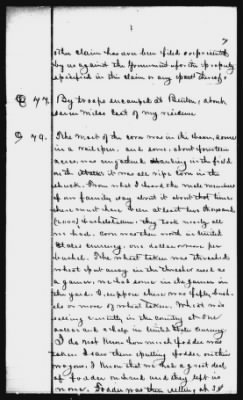 7
other claim has ever been filed or presented
by us against the Government for the property
specified in this claim or any part thereof.
Q 47. By troops encamped at Benton, about
seven miles east of my residence
Q 49. The most of the corn was in the barn, some
in a rail pen, and some, about fourteen
acres was ungathered standing in the field
on the stalks it was all ripe corn in the
shuck. From what I heard the male members
of our family say about it about that time
there must have been at least two thousand
(2000) bushels. they took nearly all
we had. corn was then worth in United
States currency, one dollar or more per
bushel. The wheat taken was threshed
wheat put away in the
we had some in the garner in
the yard. I suppose there was fifty bush-
els or more of wheat taken. Wheat was
selling currently in the country at one
dollar and a half in United States Currency
I do not know how much fodder was
taken. I saw them putting fodder on their
wagons. I know that we had a great deal
of fodder on hand and they left us
none. Fodder was then selling at